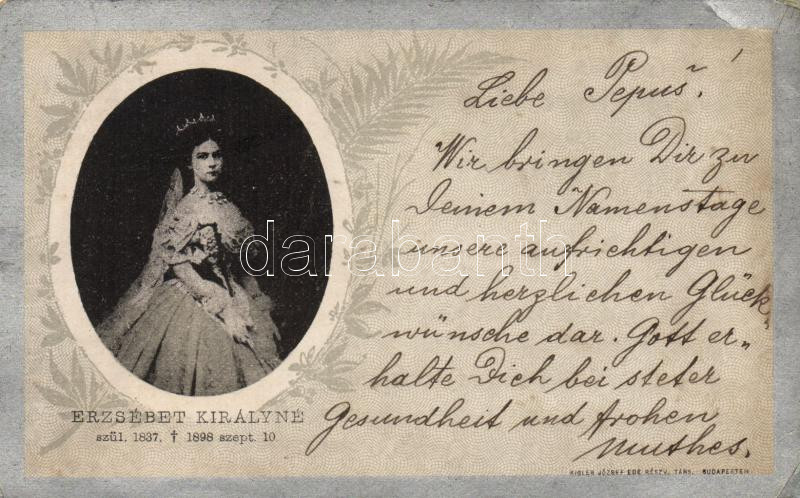 Liebe Pepuš!
Wir bringen Dir zu
Deinem Namenstage
unsere aufrichtigen
und herzlichen Glück-
wünsche dar. Gott er„
halte Dich bei steter
Gesundheit und frohen
Muthes.
ERZSÉBET KIRÁLYNÉ
szül. 1837. † 1898 szept. 10.
RIGLER JÓZSEF EDE RÉSZV. TÁRS. BUDAPESTEN
darabanth